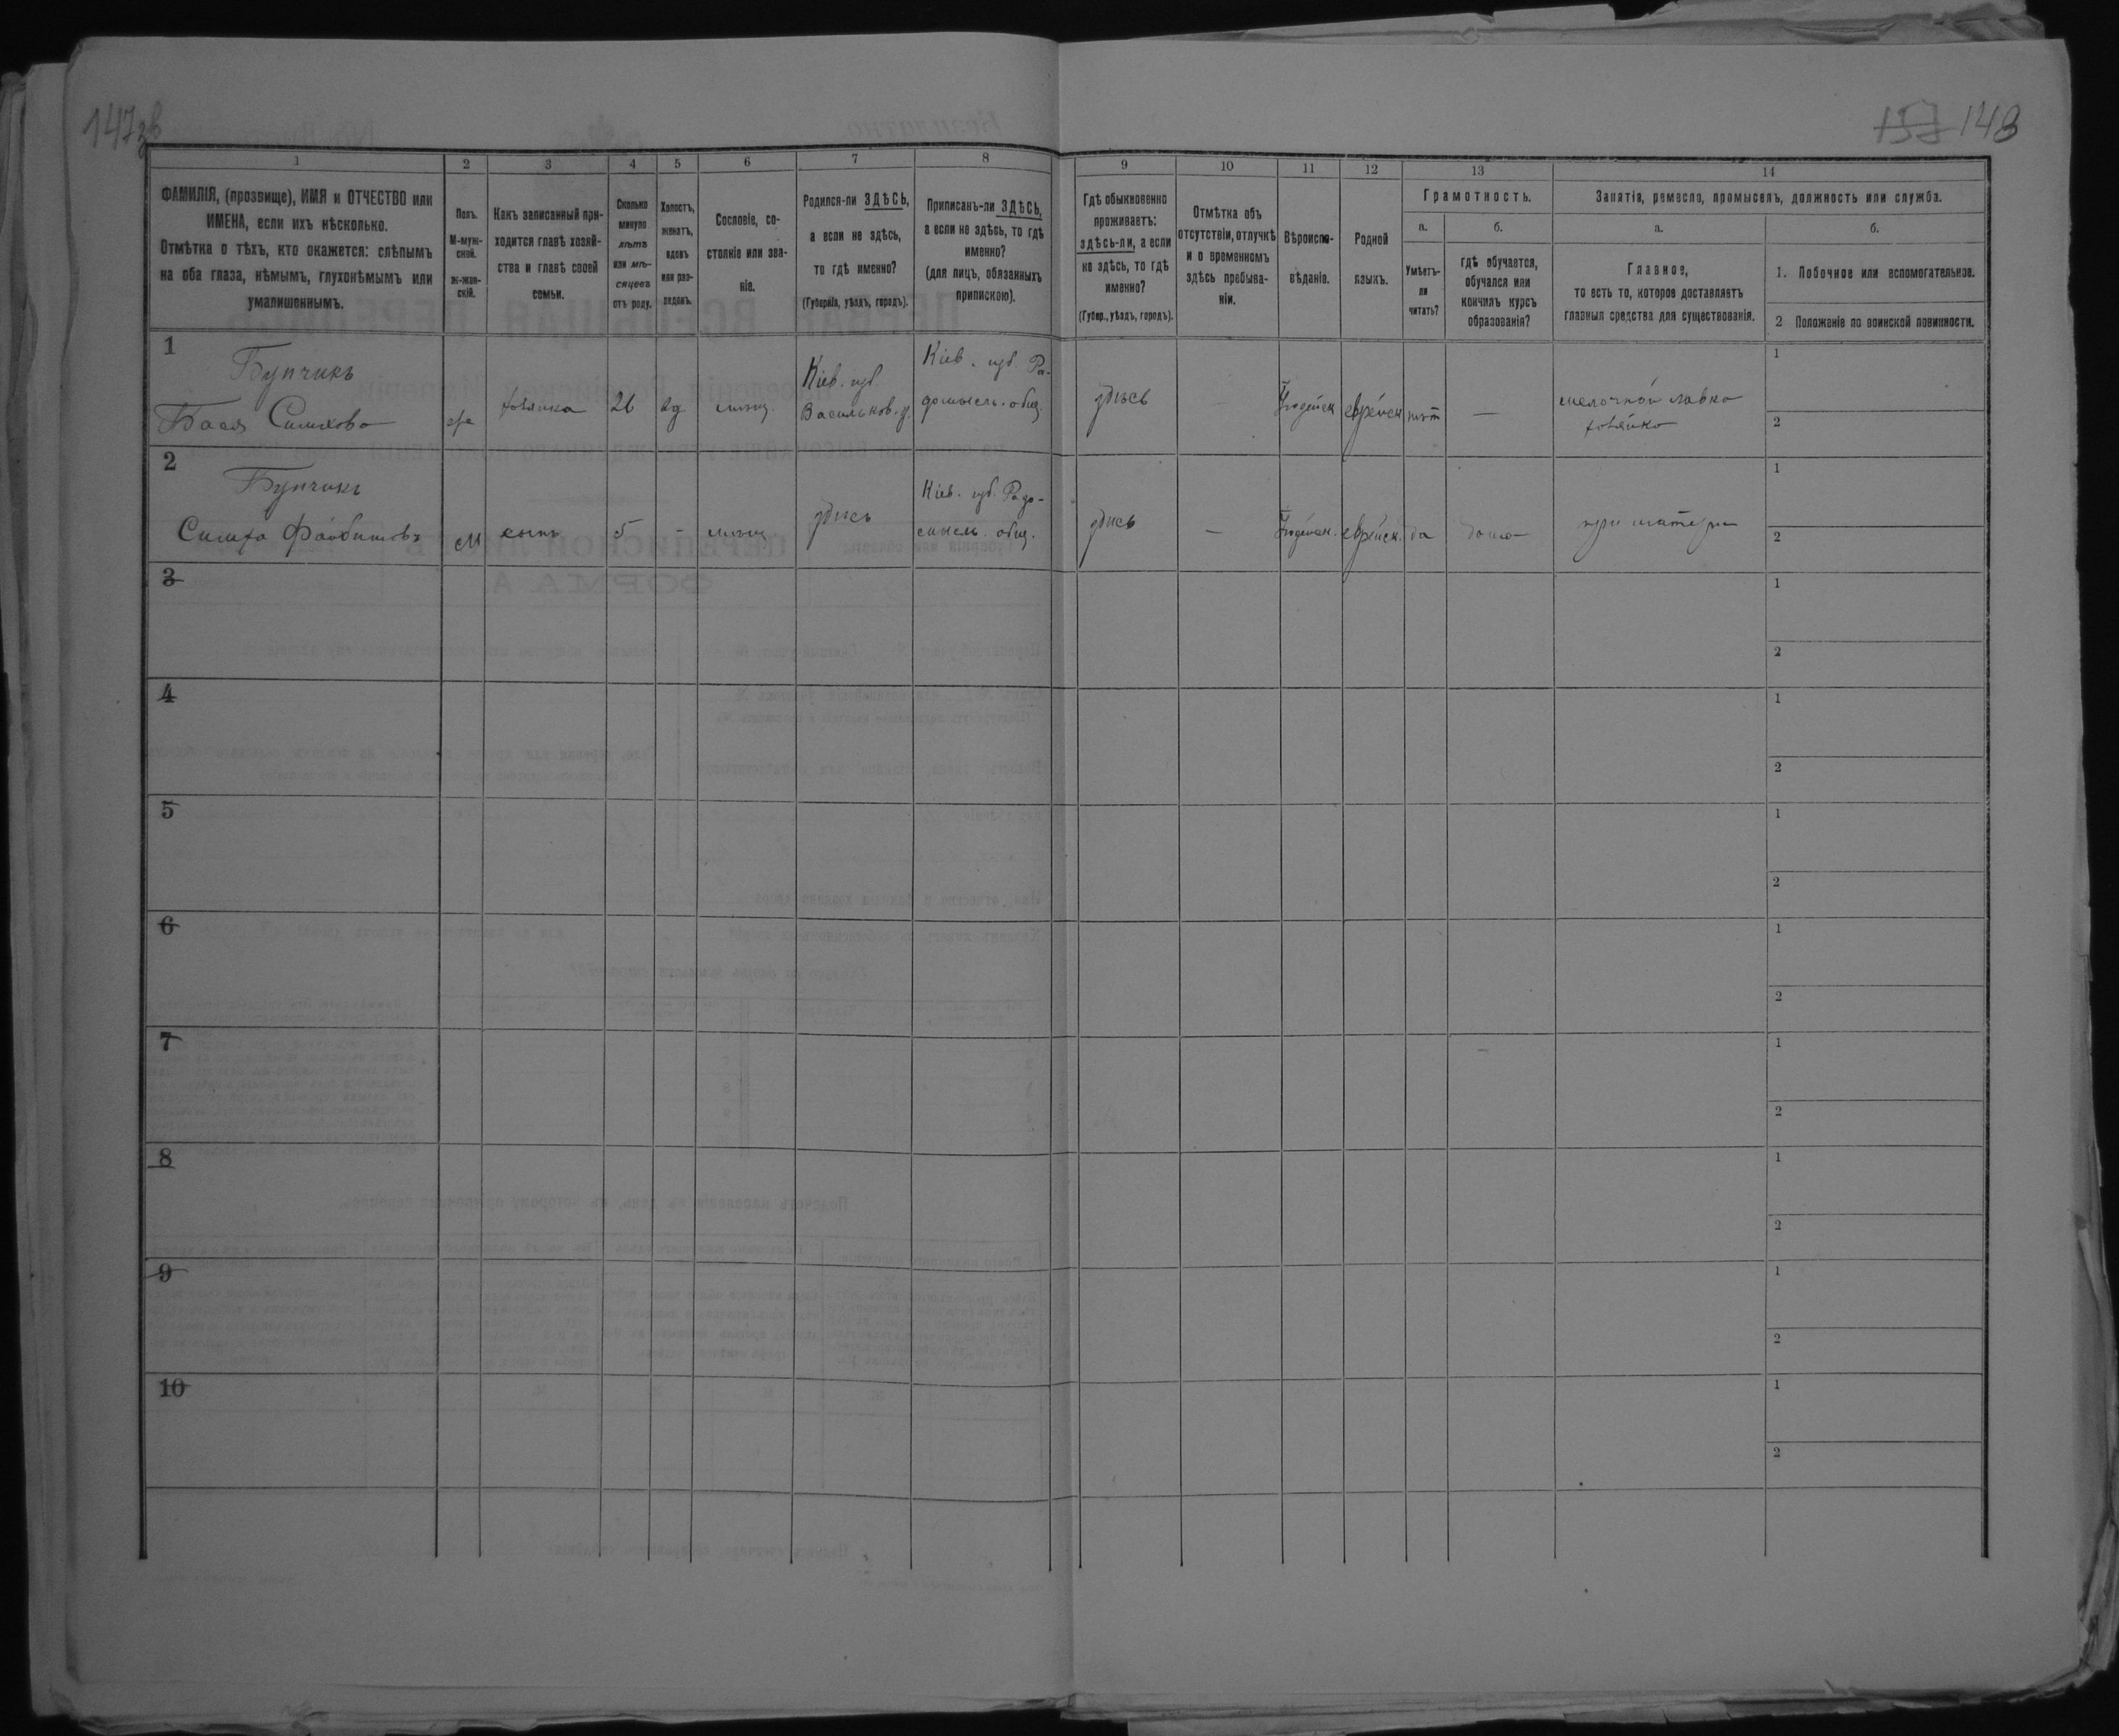 147зв
157 148
1
2
3
4
5
6
7
8
9
10
11
12
13
14
ФАМИЛІЯ, (прозвище), ИМЯ и ОТЧЕСТВО или
ИМЕНА, если ихъ нѣсколько.
Отмѣтка о тѣхъ, кто окажется: слѣпымъ
на оба глаза, нѣмымъ, глухонѣмымъ или
умалишеннымъ.
Полъ.
М-муж-
ской.
ж-жен-
скій.
Какъ записанный при-
ходится главѣ хозяй-
ства и главѣ своей
семьи.
Сколько
минуло
лѣтъ
или мѣ-
сяцевъ
отъ роду.
Холостъ,
женатъ,
вдовъ
или раз-
веденъ.
Сословіе, со-
стояніе или зва-
ніе.
Родился-ли ЗДѢСЬ,
а если не здѣсь,
то гдѣ именно?
(Губернія, уѣздъ, городъ).
Приписанъ-ли ЗДѢСЬ,
а если не здѣсь, то гдѣ
именно?
(для лицъ, обязанныхъ
припискою).
Гдѣ обыкновенно
проживаетъ:
здѣсь-ли, а если
не здѣсь, то гдѣ
именно?
(Губер., уѣздъ, городъ).
Отмѣтка объ
отсутствіи, отлучкѣ
и о временномъ
здѣсь пребыва-
ніи.
Вѣроиспо-
вѣданіе.
Родной
языкъ.
Грамотность.
а.
Умѣетъ-
ли
читать?
б.
гдѣ обучается,
обучался или
кончилъ курсъ
образованія?
Занятія, ремесло, промыселъ, должность или служба.
а.
Главное,
то есть то, которое доставляетъ
главныя средства для существованія.
б.
1. Побочное или вспомогательное.
2 Положеніе по воинской повинности.
1
Бунчикъ
Бася Симхова
ж
хозяйка
26
вд
мѣщ.
Кіев. губ.
Васильков. у.
Кіев. губ. Ра-
домысл. общ.
здѣсь
—
Іюдейск
еврейск
нѣт
—
мелочной лавки
хозяйка
1
2
2
Бунчикъ
Симха Файбишовъ
М
сынъ
5
-
мѣщ
здѣсь
Кіев. губ. Радо-
мысл. общ.
здѣсь
—
Іюдейск.
еврейск.
да
дома
при матери
1
2
3
1
2
4
1
2
5
1
2
6
1
2
7
1
2
8
1
2
9
1
2
10
1
2